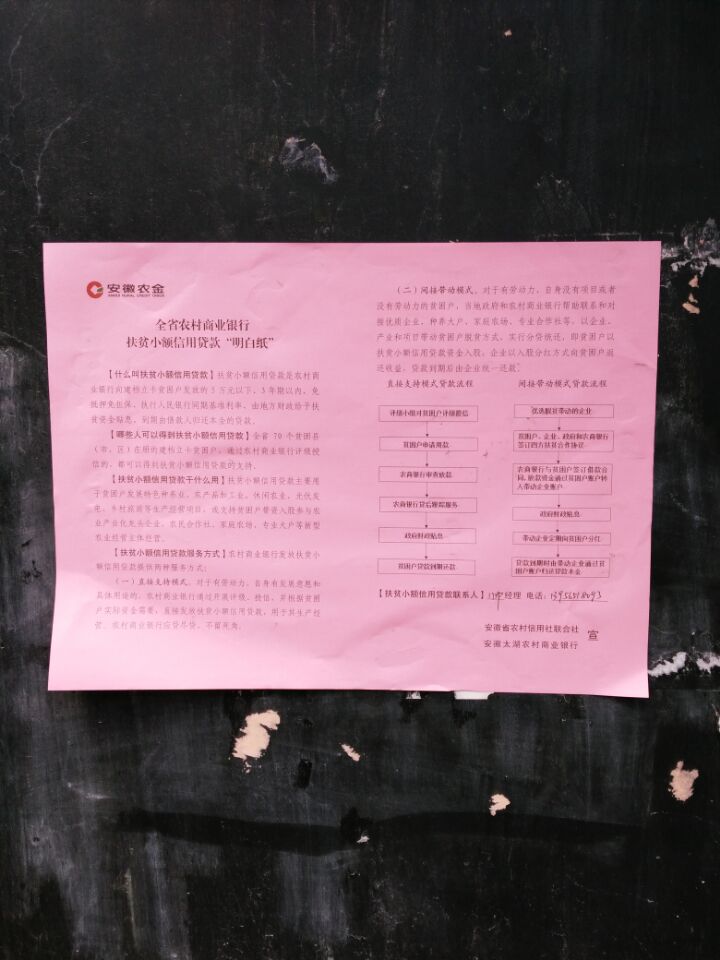 安徽农金
ANHUI RURAL CREDIT UNION
全省农村商业银行
扶贫小额信用贷款“明白纸”
【什么叫扶贫小额信用贷款】扶贫小额信用贷款是农村商
业银行向建档立卡贫困户发放的5万元以下、3年期以内、免
抵押免担保、执行人民银行同期基准利率、由地方财政给予扶
贫资金贴息、到期由借款人归还本金的贷款。
【哪些人可以得到扶贫小额信用贷款】全省70个有扶贫
（市、区）在册的建档立卡贫困户，通过农村商业银行评级授
信的，都可以得到扶贫小额信用贷款的支持。
【扶贫小额信用贷款干什么用】扶贫小额信用贷款主要用
于贫困户发展特色种养业、农产品加工业、休闲农业、光伏发
电、乡村旅游等生产经营项目，或支持贫困户带资入股参与农
业产业化龙头企业、农民合作社、家庭农场、专业大户等新型
农业经营主体经营。
【扶贫小额信用贷款服务方式】农村商业银行发放扶贫小
额信用贷款提供两种服务方式：
（一）直接支持模式。对于有劳动力、自身有发展意愿和
具体用途的，农村商业银行通过开展评级、授信，并根据贫困
户实际资金需要，直接发放扶贫小额信用贷款，用于其生产经
营。农村商业银行应贷尽贷，不留死角。
（二）间接带动模式。对于有劳动力、自身没有项目或者
没有劳动力的贫困户，当地政府和农村商业银行帮助联系和对
接优质企业、种养大户、家庭农场、专业合作社等，以企业、
产业和项目带动贫困户脱贫方式，实行分贷统还，即贫困户以
扶贫小额信用贷款资金入股，企业以入股分红方式向贫困户返
还收益，贷款到期后由企业统一还款。
直接支持模式贷款流程 间接带动模式贷款流程
评级小组对贫困户评级授信
贫困户申请用款
农商银行审查放款
农商银行贷后跟踪服务
政府财政贴息
贫困户贷款到期还款
优选脱贫带动的企业
贫困户、企业、政府和农商银行
签订四方扶贫合作协议
农商银行与贫困户签订借款合
同,放款资金通过贫困户账户转
入带动企业账户
政府财政贴息
带动企业定期向贫困户分红
贷款到期时由带动企业通过贫
困户账户归还贷款本金
【扶贫小额信用贷款联系人】 经理 电话：
安徽省农村信用社联合社
安徽太湖农村商业银行
宣